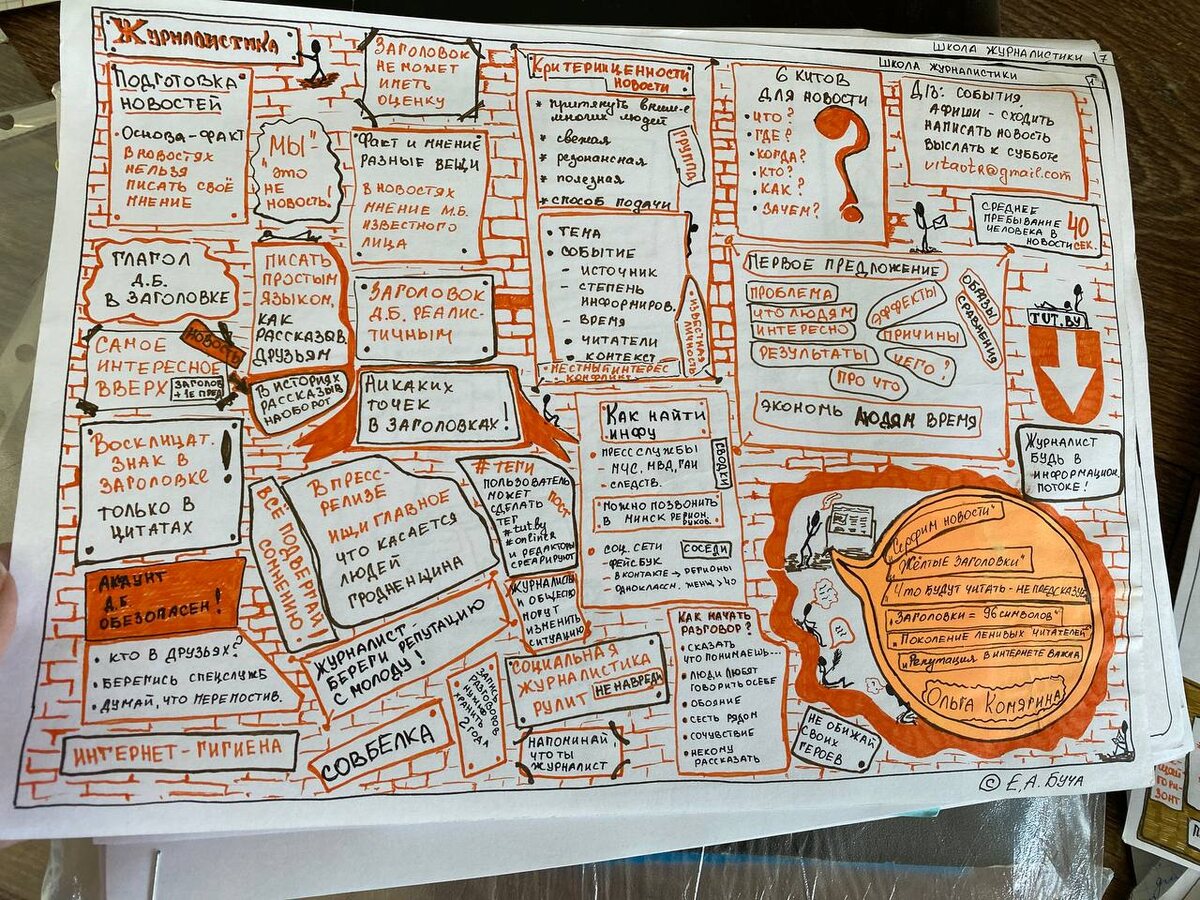 Журналистика
Школа журналистики 7
Школа журналистики
Подготовка
новостей
• Основа - факт
В новостях
нельзя
писать своё
мнение
"Мы" -
это
не
новость!
Заголовок
не может
иметь
оценку
Факт и мнение
разные вещи
В новостях
мнение м.б.
известного
лица
Глагол
д.б.
в заголовке
Писать
простым
языком,
как
рассказыв.
друзьям
В историях
рассказыв
наоборот
Заголовок
д.б. реалис-
тичным
Самое
интересное
вверх
Новость
Заголов
+ 1е пред
Никаких
точек
в заголовках!
Восклицат.
знак в
заголовке
только в
цитатах
!
Всё подвергай
сомнению!
В пресс-
релизе
ищи главное
что касается
людей
Гродненщина
# теги
пользователь
может
сделать
тег
# tut.by
# onlinetr
и редакторы
среагируют
Пост
Аккаунт
д.б.
обезопасен!
• Кто в друзьях?
• Берегись спецслужб
• Думай, что перепостив.
Интернет-гигиена
Журналист -
береги репутацию
с молоду!
Совбелка
Запись
разговоров
хранить
2 года
Журналисты
и общество
могут
изменить
ситуацию
Социальная
журналистика
рулит
Не навреди
Напоминай,
что ты
журналист
Критерии ценности
новости
* притянуть вним-е
многих людей
* свежая
* резонансная
* полезная
* способ подачи
Группа
• Тема
• Событие
- источник
- степень
информиров.
- время
• читатели
• контекст
• местный интерес
конфликт
Известная
личность
Как найти
инфу
• Пресс службы
- МЧС, МВД, ГАИ
- следств.
Сводки
• Можно позвонить
в Минск регион.
руков.
• Соц. сети
Соседи
Фейсбук
- ВКонтакте → регионы
- Одноклассн. женщ > 40
Как начать
разговор?
• сказать
что понимаешь...
• люди любят
говорить о себе
• обояние
• сесть рядом
• сочувствие
• некому
рассказать
6 китов
для новости
• Что?
• Где?
• Когда?
• Кто?
• Как?
• Зачем?
?
Д/з: события,
афиши - сходить
написать новость
выслать к субботе
vitavtr@gmail.com
Среднее
пребывание
человека в
новости
40
сек.
Первое предложение
Проблема
Что людям
интересно
Результаты
Эффекты
Причины
Чего?
Про что
Образы
сравнения
Экономь людям время
TUT.BY
Журналист
будь в
информацион.
потоке!
"Серфим новости"
"Жёлтые заголовки"
Что будут читать - не предсказуе
"Заголовки = 96 символов"
"Поколение ленивых читателей"
"Репутация в интернете важна
Ольга Комягина
Не обижай
своих
героев
© Е.А. Буча